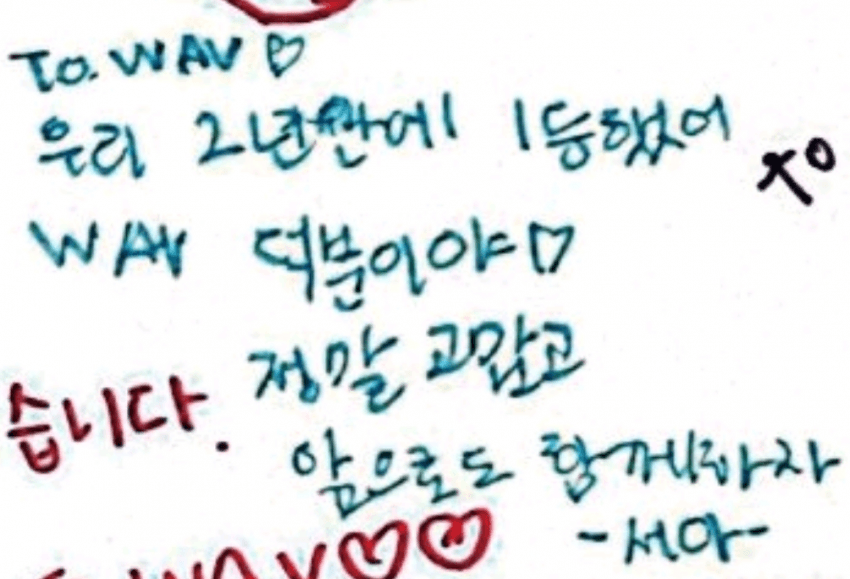 To. WAV ♡
우리 2년만에 1등했어
To
WAV 덕분이야♡
정말 고맙고
습니다.
앞으로도 함께하자
-서아-
To WAV♡♡